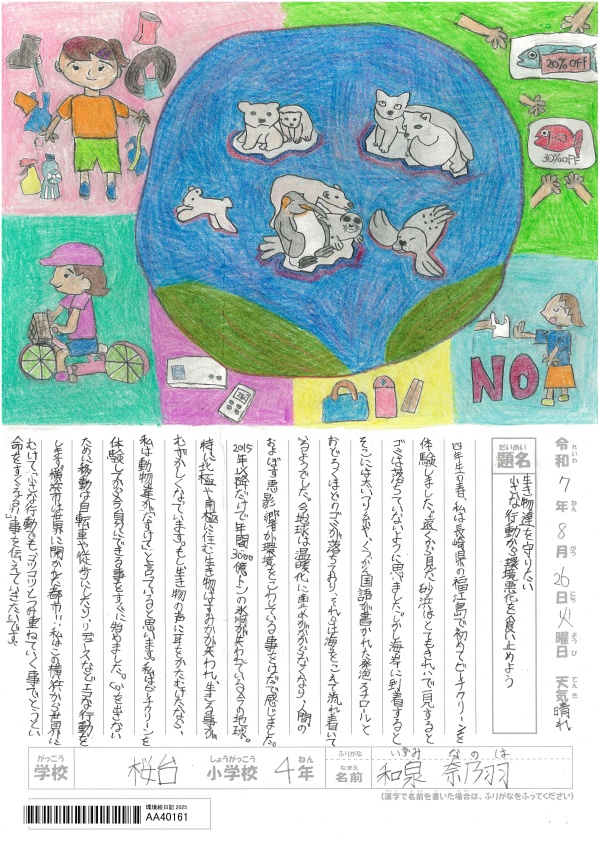 20% OFF
30% OFF
NO
令和7年8月26日火曜日 天気 晴れ
題名
生き物達を守りたい
小さな行動から環境悪化を食い止めよう
四年生の春、私は長崎県の福江島で初めてビーチクリーンを
体験しました。遠くから見た砂浜はとてもきれいで一見すると
ゴミは落ちていないように思いました。しかし海岸に到着すると
そこには太いつり糸やくつ、かん国語が書かれた発泡スチロールと
おどろくほどのゴミが落ちており、それらは海をこえて流れ着いて
いるようでした。今地球は温暖化に歯止めがかからなくなり、人間の
およぼす悪影響が環境をこわしている事をはだで感じました。
2015年以降だけで年間3000億トンの氷河が失われている今の地球。
特に北極や南極に住む生き物はすみかが失われ、生きる事が
むずかしくなっています。もし、生き物の声に耳をかたむけたなら、
私は動物達が「たすけて」と言っていると思います。私はビーチクリーンを
体験してから今自分にできる事をすぐに始めました。CO₂を出さない
ために移動は自転車や徒歩にしたり、リデュースなどエコな行動を
します。横浜市は世界に開かれた都市!!私はこの横浜から世界に
むけて「小さな行動でもコツコツとつみ重ねていく事でとうとい
命をすくえる!!」事を伝えていきたいです。
学校 桜台 小学校 4年 名前 和泉 奈乃羽
がっこう しょうがっこう ねん ふりがな なまえ いずみ なのは
(漢字で名前を書いた場合は、ふりがなをふってください)
環境絵日記 2025
AA40161